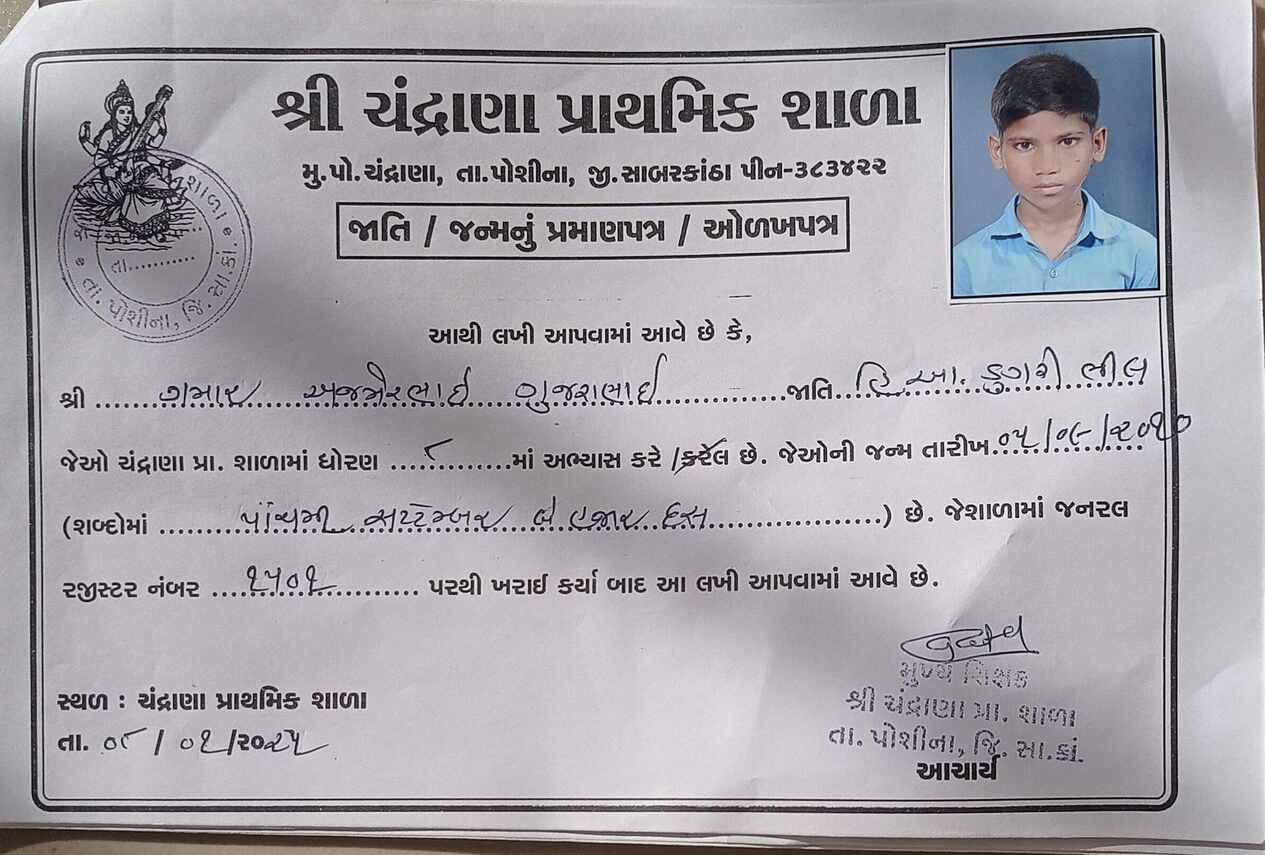 શ્રી ચંદ્રાણા પ્રાથમિક શાળા
મુ.પો.ચંદ્રાણા, તા.પોશીના, જી.સાબરકાંઠા પીન-૩૮૩૪૨૨
જાતિ / જન્મનું પ્રમાણપત્ર / ઓળખપત્ર
શાળા
તા...........
તા. પોશીના, જિ. સા.કાં.
આથી લખી આપવામાં આવે છે કે,
શ્રી ગમાર અજમેરભાઈ ગુજરાભાઈ જાતિ હિ.આ. ડુંગરી ભીલ
જેઓ ચંદ્રાણા પ્રા. શાળામાં ધોરણ ૮ માં અભ્યાસ કરે /કરેલ છે. જેઓની જન્મ તારીખ ૦૫/૦૯/૨૦૧૦
(શબ્દોમાં પાંચમી સપ્ટેમ્બર બે હજાર દસ) છે. જેશાળામાં જનરલ
રજીસ્ટર નંબર ૧૫૦૧ પરથી ખરાઈ કર્યા બાદ આ લખી આપવામાં આવે છે.
મુખ્ય શિક્ષક
શ્રી ચંદ્રાણા પ્રા. શાળા
તા. પોશીના, જિ. સા.કાં.
આચાર્ય
સ્થળ : ચંદ્રાણા પ્રાથમિક શાળા
તા. ૦૮/૦૧/૨૦૨૫